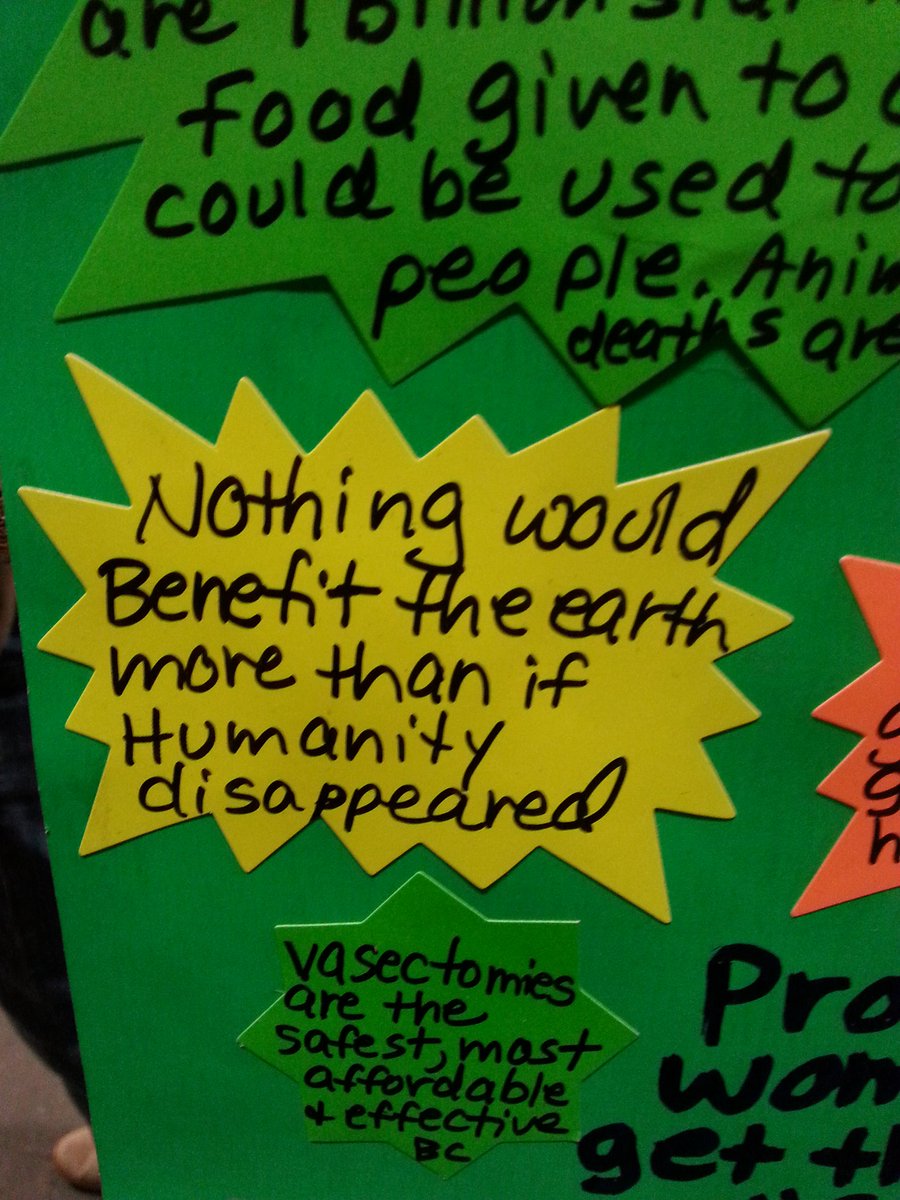 are 1 Billion star
food given to
could be used to
people. Anim
deaths are
Nothing would
Benefit the earth
more than if
Humanity
disappeared
vasectomies
are the
safest, most
affordable
& effective
BC
Pro
wom
get th